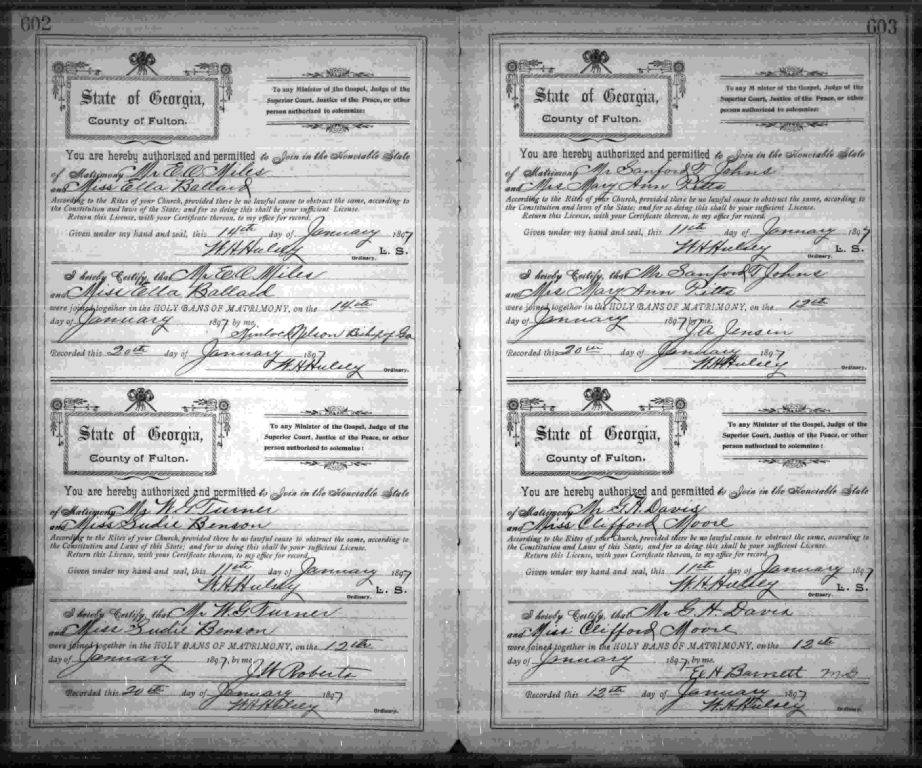 602
State of Georgia,
County of Fulton.
To any Minister of the Gospel, Judge of the
Superior Court, Justice of the Peace, or other
person authorized to solemnize:
You are hereby authorized and permitted to Join in the Honorable State
of Matrimony Mr E C Miles
and Miss Ella Ballard
According to the Rites of your Church, provided there be no lawful cause to obstruct the same, according to
the Constitution and laws of the State; and for so doing this shall be your sufficient License.
Return this License, with your Certificate thereon, to my office for record.
Given under my hand and seal, this 14th day of January 1897
W.H. Hulsey L. S.
Ordinary.
I hereby Certify, that Mr E C Miles
and Miss Ella Ballard
were joined together in the HOLY BANS OF MATRIMONY, on the 14th
day of January 1897 by me,
Nelson Bishop of Ga
Recorded this 20th day of January 1897
W.H. Hulsey
Ordinary.
State of Georgia,
County of Fulton.
To any Minister of the Gospel, Judge of the
Superior Court, Justice of the Peace, or other
person authorized to solemnize:
You are hereby authorized and permitted to Join in the Honorable State
of Matrimony Mr W. G Turner
and Miss Benson
According to the Rites of your Church, provided there be no lawful cause to obstruct the same, according to
the Constitution and Laws of this State; and for so doing this shall be your sufficient License.
Return this License, with your Certificate thereon, to my office for record.
Given under my hand and seal, this 11th day of January 1897
W.H. Hulsey L. S.
Ordinary.
I hereby Certify, that Mr W. G Turner
and Miss Benson
were joined together in the HOLY BANS OF MATRIMONY, on the 12th
day of January 1897, by me,
J W Roberts
Recorded this 20th day of January 1897
W.H. Hulsey
Ordinary.
603
State of Georgia,
County of Fulton.
To any Minister of the Gospel, Judge of the
Superior Court, Justice of the Peace, or other
person authorized to solemnize:
You are hereby authorized and permitted to Join in the Honorable State
of Matrimony Mr Sanford T Johns
and Mrs Mary Ann Pitts
According to the Rites of your Church, provided there be no lawful cause to obstruct the same, according to
the Constitution and laws of the State; and for so doing this shall be your sufficient License.
Return this License, with your Certificate thereon, to my office for record.
Given under my hand and seal, this 11th day of January 1897
W.H. Hulsey L. S.
Ordinary.
I hereby Certify, that Mr Sanford T Johns
and Mrs Mary Ann Pitts
were joined together in the HOLY BANS OF MATRIMONY, on the 12th
day of January 1897 by me,
J A Jensen
Recorded this 20th day of January 1897
W.H. Hulsey
Ordinary.
State of Georgia,
County of Fulton.
To any Minister of the Gospel, Judge of the
Superior Court, Justice of the Peace, or other
person authorized to solemnize:
You are hereby authorized and permitted to Join in the Honorable State
of Matrimony Mr G. H. Davis
and Miss Clifford Moore
According to the Rites of your Church, provided there be no lawful cause to obstruct the same, according to
the Constitution and Laws of this State; and for so doing this shall be your sufficient License.
Return this License, with your Certificate thereon, to my office for record.
Given under my hand and seal, this 11th day of January 1897
W.H. Hulsey L. S.
Ordinary.
I hereby Certify, that Mr G. H. Davis
and Miss Clifford Moore
were joined together in the HOLY BANS OF MATRIMONY, on the 12th
day of January 1897, by me,
E H Barnett M G
Recorded this 12th day of January 1897
W.H. Hulsey
Ordinary.